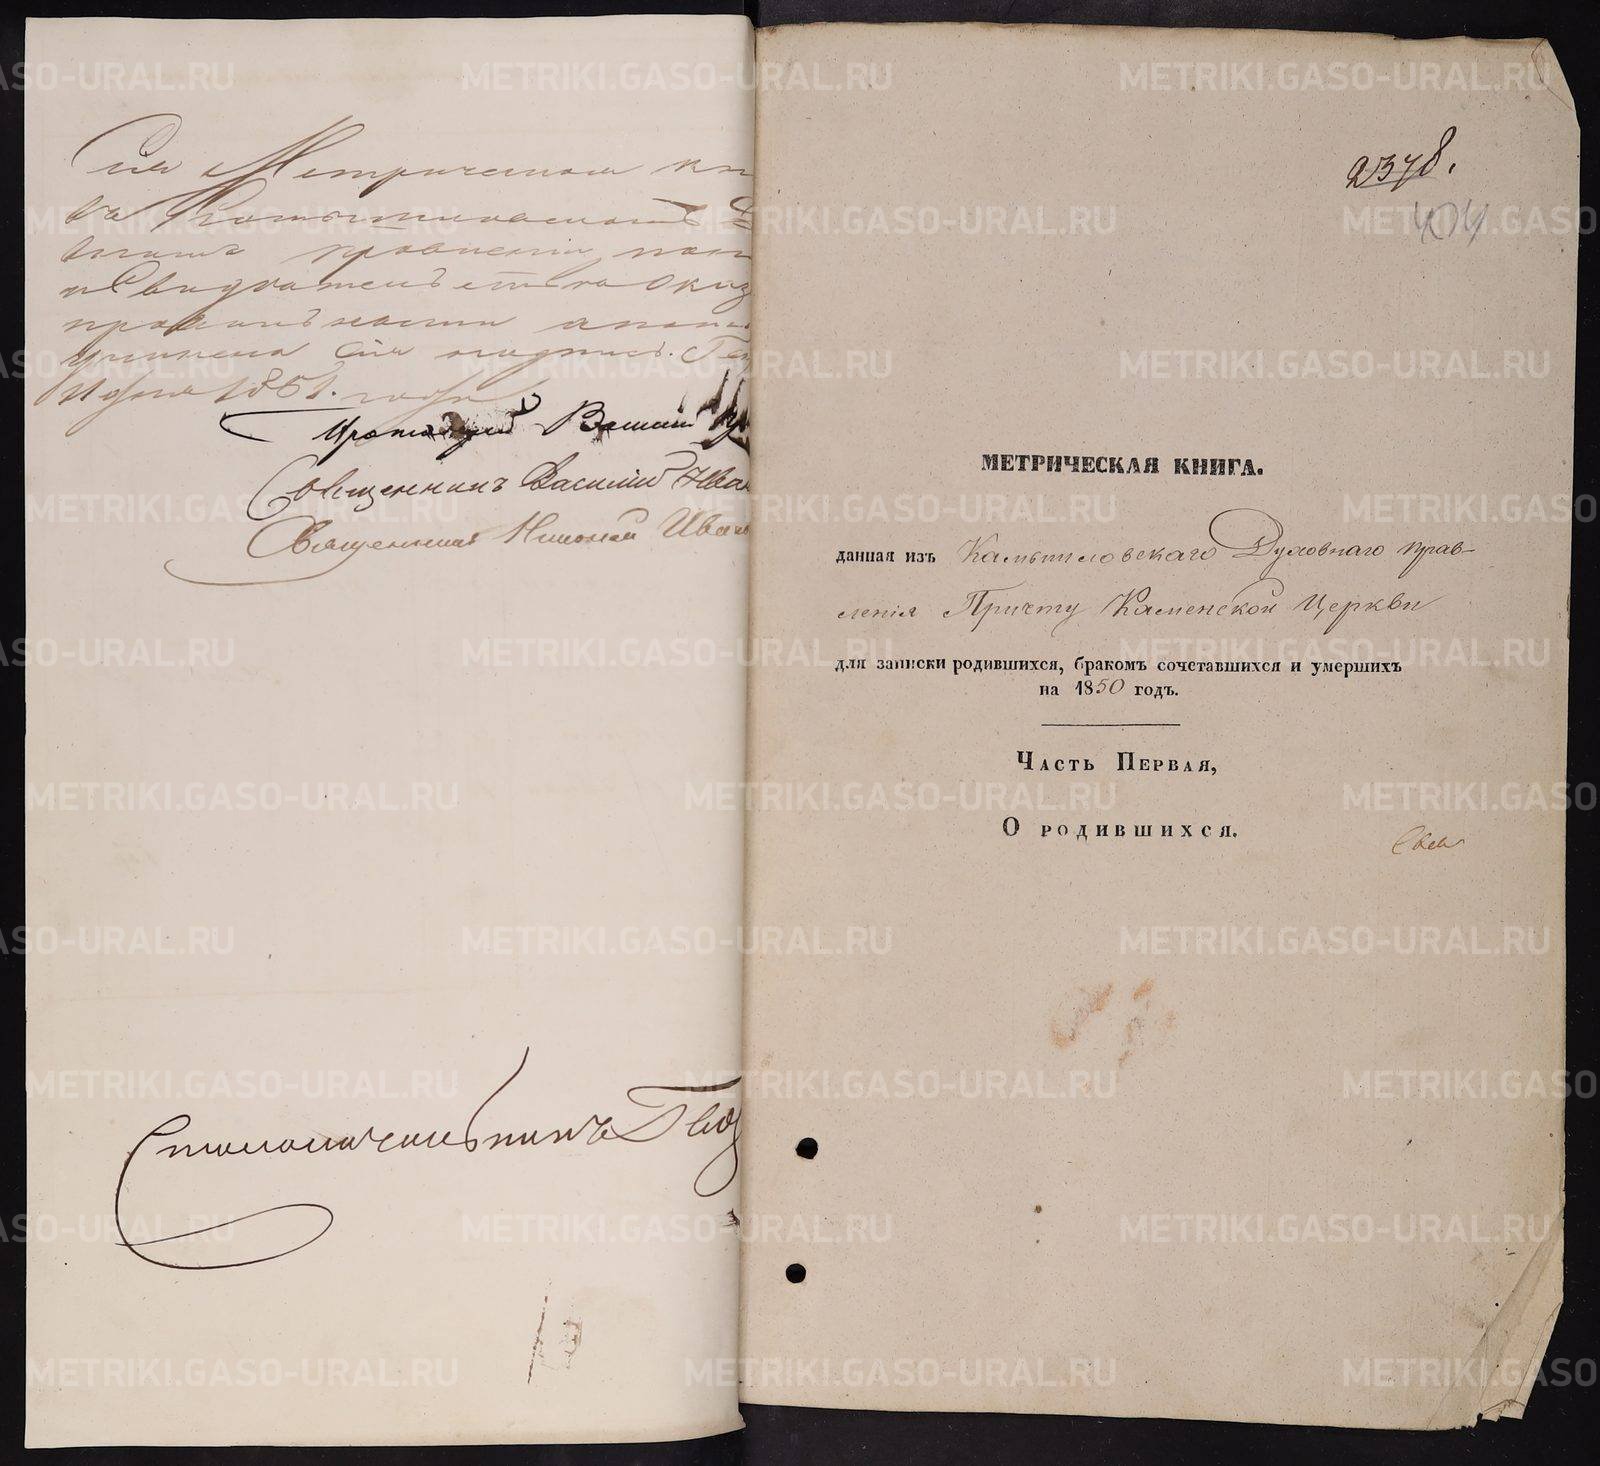 Сія Метрическая кн
въ Камышловскомъ Ду
правленіи
и Свидѣтельствована оказ
учинена сія подпись. Ген
1851. года
Протоіерей Василій
Священникъ Василій Иван
Священникъ Николай Иван
Столоначальникъ Гвоз
2378.
404
МЕТРИЧЕСКАЯ КНИГА.
данная изъ Камышловскаго Духовнаго Прав-
ленія Причту Каменской Церкви
для записки родившихся, бракомъ сочетавшихся и умершихъ
на 1850 годъ.
Часть Первая,
О родившихся.
METRIKI.GASO-URAL.RU